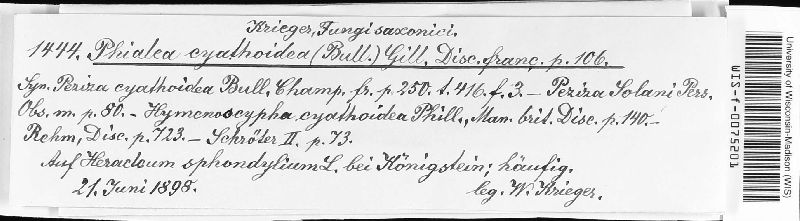 Krieger, Fungi saxonici.
1444. Phialea cyathoidea (Bull.) Gill. Disc. franç. p. 106.
Syn. Peziza cyathoidea Bull. Champ. fr. p. 250. t. 416. f. 3. — Peziza Solani Pers.
Obs. m. p. 80. — Hymenoscypha cyathoidea Phill., Man. brit. Disc. p. 140. —
Rehm, Disc. p. 723. — Schröter II. p. 73.
Auf Heracleum sphondylium L. bei Königstein; häufig.
21. Juni 1898. leg. W. Krieger.
University of Wisconsin-Madison (WIS)
WIS-f-0075201